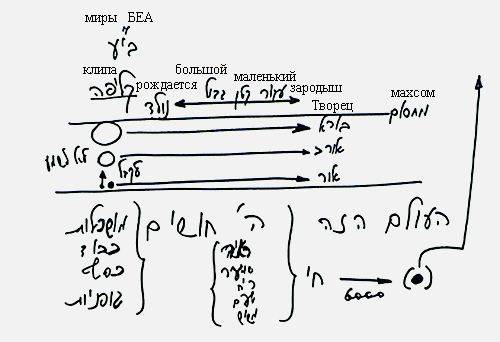 миры БЕА
בי"ע
большой
клипа рождается маленький зародыш
קליפה נולד גדול קטן עובר
Творец махсом
בורא מחסום
לקבל
אור
מושכלות ה' חושים העולם הזה
כבוד ראיה
כסף שמיעה
ריח חי
גופניות טעם 6000
מישוש